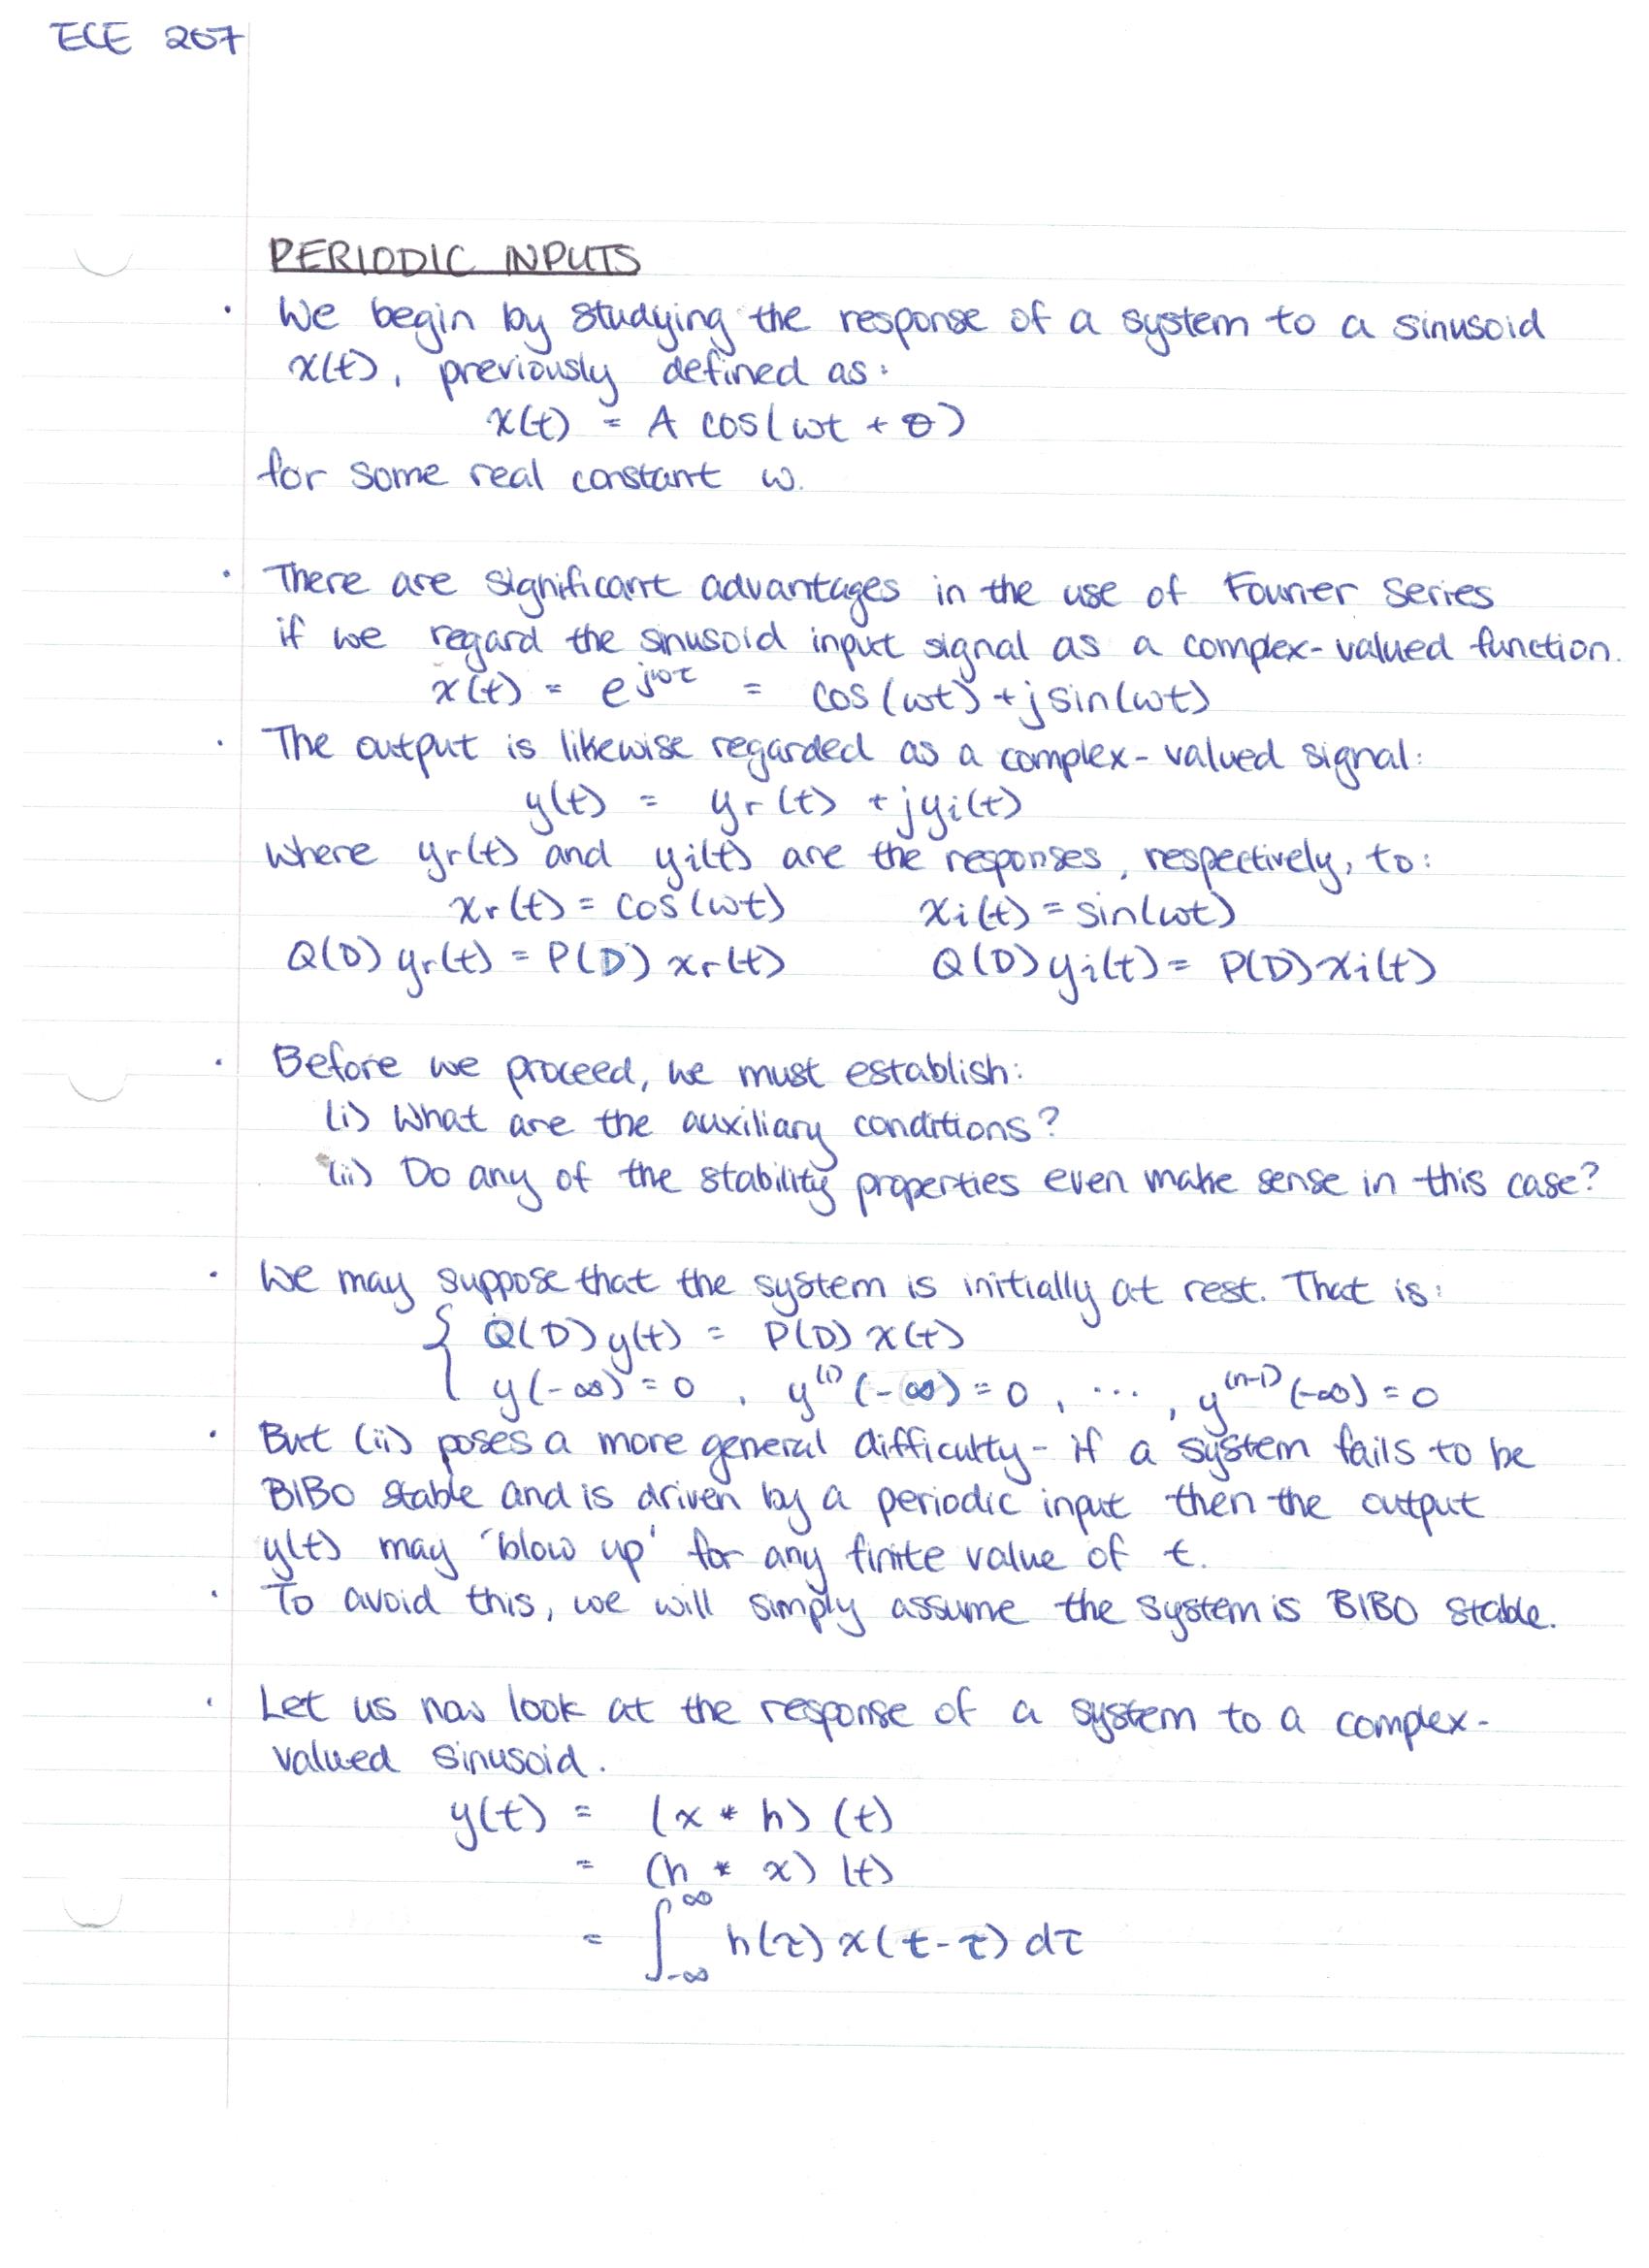 ECE 207
PERIODIC INPUTS
· We begin by studying the response of a system to a sinusoid
x(t), previously defined as:
x(t) = A cos(ωt + θ)
for some real constant ω.
· There are significant advantages in the use of Fourier Series
if we regard the sinusoid input signal as a complex-valued function.
x(t) = e^{jωt} = cos(ωt) + jsin(ωt)
· The output is likewise regarded as a complex-valued signal:
y(t) = yr(t) + jyi(t)
where yr(t) and yi(t) are the responses, respectively, to:
xr(t) = cos(ωt) xi(t) = sin(ωt)
Q(D) yr(t) = P(D) xr(t) Q(D) yi(t) = P(D) xi(t)
· Before we proceed, we must establish:
(i) What are the auxiliary conditions?
(ii) Do any of the stability properties even make sense in this case?
· We may suppose that the system is initially at rest. That is:
{ Q(D) y(t) = P(D) x(t)
y(-∞) = 0 , y^{(1)}(-∞) = 0 , ... , y^{(n-1)}(-∞) = 0
· But (ii) poses a more general difficulty - if a system fails to be
BIBO stable and is driven by a periodic input then the output
y(t) may 'blow up' for any finite value of t.
· To avoid this, we will simply assume the system is BIBO stable.
· Let us now look at the response of a system to a complex-
valued sinusoid.
y(t) = (x * h) (t)
= (h * x) (t)
= ∫_{-∞}^{∞} h(τ) x(t-τ) dτ